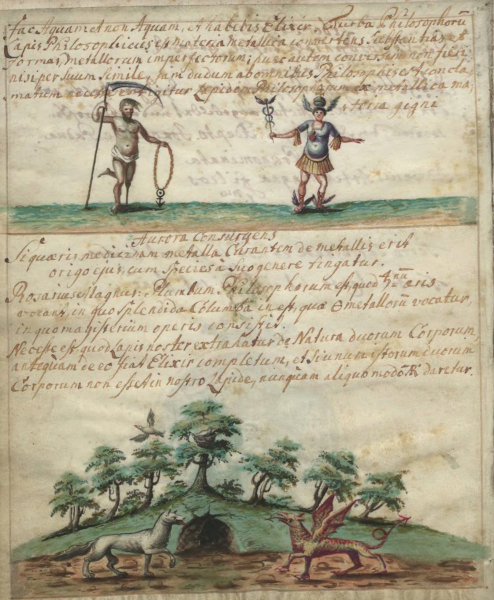 Fac Aquam et non Aquam, et habebis Elixir. Turba Philosophorū
Lapis Philosophicus est materia metallica convertens Substantias et
Formas Metallorum imperfectorum;
nisi per suum simile, Jam dudum ab omnibus Philosophis est conola
matum lapidem Philosophorum ex metallica ma
teria gigni
Aurora Consurgens
Si quæris medicinam metalla Curantem de metallis erit
origo ejus, cum species a suo genere fingatur.
Rosarius Magnus. Plumbum Philosophorum est, quod aris
in quo splendida Columba in est, quæ metallorū vocatur,
in quo magisterium operis consistit.
Necesse est quod Lapis noster extrahatur de Natura duorum Corporum,
antequam de eo fiat Elixir completum, et Si unum istorum duorum
Corporum non esset in nostro Lapide, nunquam aliquo modo duretur.